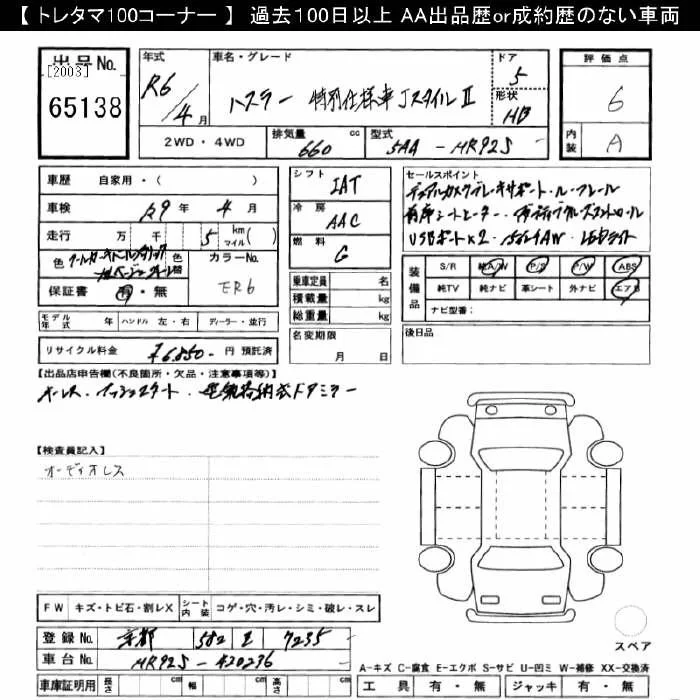 【 トレタマ100コーナー 】 過去100日以上 AA出品歴or成約歴のない車両
出品No.
[2003]
65138
年式
R6/4月
車名・グレード
ハスラー 特別仕様車JスタイルⅡ
ドア
5
形状
HB
評価点
6
内装
A
2WD・4WD
排気量 660 cc
型式 5AA-MR92S
車歴 自家用・( )
車検 R9年 4月
走行 万 千 5 km マイル( )
色
色替
カラーNo.
ER6
保証書 有・無
モデル年式 年 ハンドル 左・右 ディーラー・並行
リサイクル料金 ¥6,850- 円 預託済
シフト
IAT
冷房
AAC
燃料
G
乗車定員 名
積載量 kg
総重量 kg
名変期限
月 日
セールスポイント
デュアルカメラブレーキサポート・ルーフレール
前席シートヒーター・
USBポート×2・15インチAW・LEDライト
装備品
S/R 純A/W P/S P/W ABS
純TV 純ナビ 革シート 外ナビ エアB
ナビ型番:
後日品
【出品店申告欄(不良箇所・欠品・注意事項等)】
オーレス・プッシュスタート・電気格納式ドアミラー
【検査員記入】
オーディオレス
FW キズ・トビ石・割レX シート内装 コゲ・穴・汚レ・シミ・破レ・スレ
登録No. 京都 582 7235
車台No. MR92S-420236
車庫証明用 長さ cm 幅 cm 高さ cm
スペア
A-キズ C-腐食 E-エクボ S-サビ U-凹ミ W-補修 XX-交換済
工具 有・無 ジャッキ 有・無